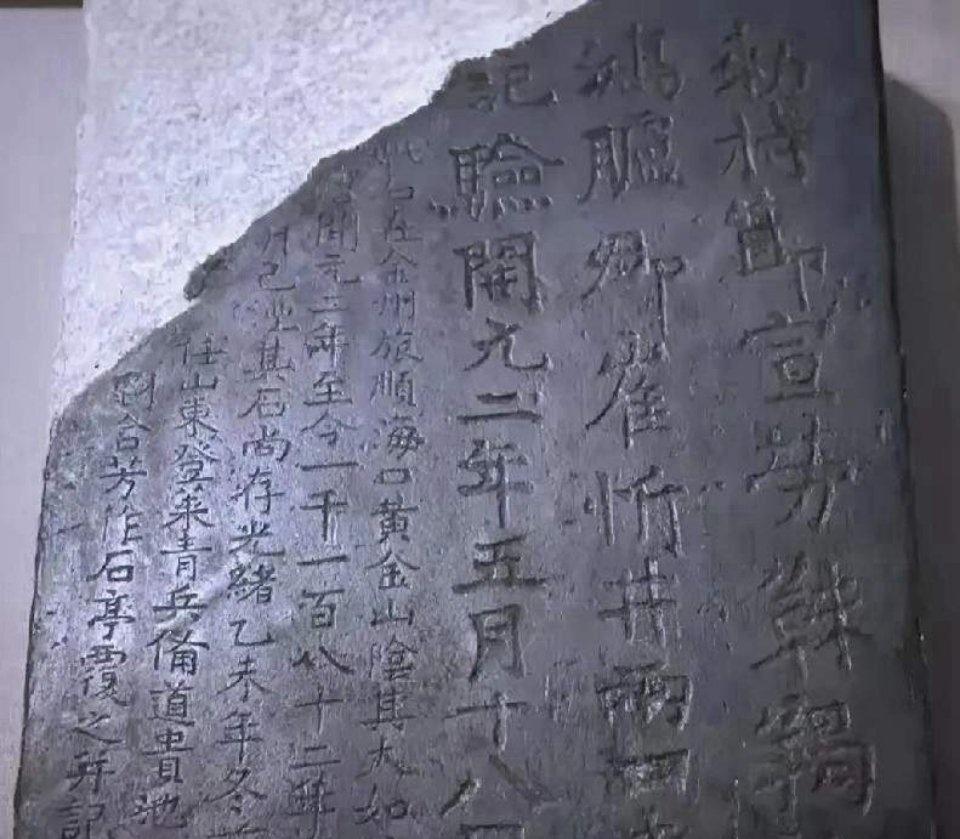 勅持節宣勞靺羯
鴻臚卿崔忻井兩口
記驗開元二年五月十八
此石在金州旅順海口黃金山陰其大如
開元二年至今一千一百八十二年
井已湮其石尚存光緒乙未年冬前
任山東登萊青兵備道貴池
劉含芳作石亭覆之并記